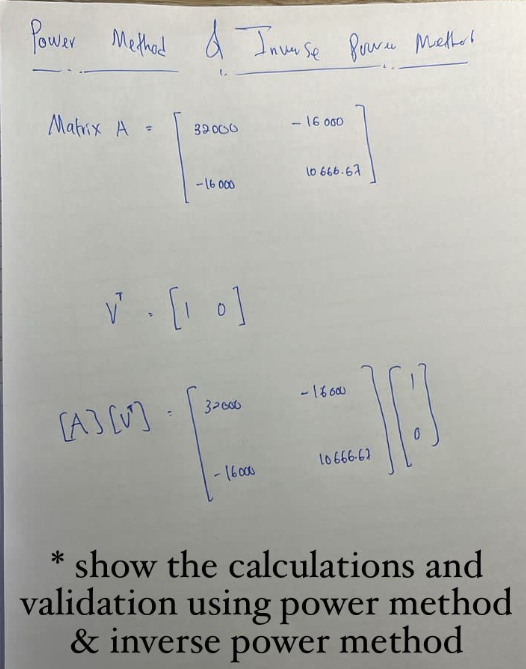 Power Method & Inverse Power Method
Matrix A = [ 32000 -16000
-16000 10666.67 ]
V^T = [1 0]
[A][V^T] = [ 32000 -16000 ] [ 1
-16000 10666.67 ] 0 ]
* show the calculations and
validation using power method
& inverse power method